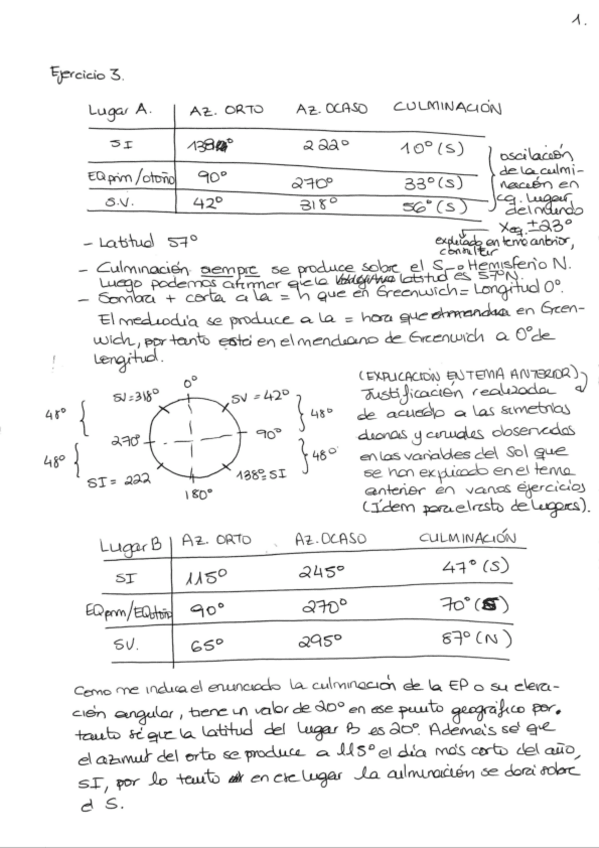 1.
Ejercicio 3.
Lugar A. AZ. ORTO AZ. OCASO CULMINACIÓN
SI 138º 222º 10º (S)
EQ prim/otoño 90º 270º 33º (S)
S.V. 42º 318º 56º (S)
oscilación
de la culmi-
nación en
cq. lugar
del mundo
Xeq. ±23º
explicado en tema anterior,
consultar
- Latitud 57º
- Culminación siempre se produce sobre el S → Hemisferio N.
Luego podemos afirmar que la latitud es 57ºN.
- Sombra + corta a la = h que en Greenwich = Longitud 0º.
El mediodía se produce a la = hora que en Green-
wich, por tanto está en el meridiano de Greenwich a 0º de
longitud.
0º
SV=318º SV = 42º
48º 48º
270º 90º
48º 48º
SI = 222 138º=SI
180º
(EXPLICACIÓN EN TEMA ANTERIOR)
Justificación realizada
de acuerdo a las simetrías
diarias y anuales observadas
en las variables del Sol que
se han explicado en el tema
anterior en varios ejercicios
(Ídem para el resto de lugares).
Lugar B AZ. ORTO AZ. OCASO CULMINACIÓN
SI 115º 245º 47º (S)
EQ prim/EQ otoño 90º 270º 70º (S)
SV. 65º 295º 87º (N)
Como me indica el enunciado la culminación de la EP o su eleva-
ción angular, tiene un valor de 20º en ese punto geográfico por
tanto sé que la latitud del lugar B es 20º. Además sé que
el azimut del orto se produce a 115º el día más corto del año,
SI, por lo tanto en ese lugar la culminación se dará sobre
el S.